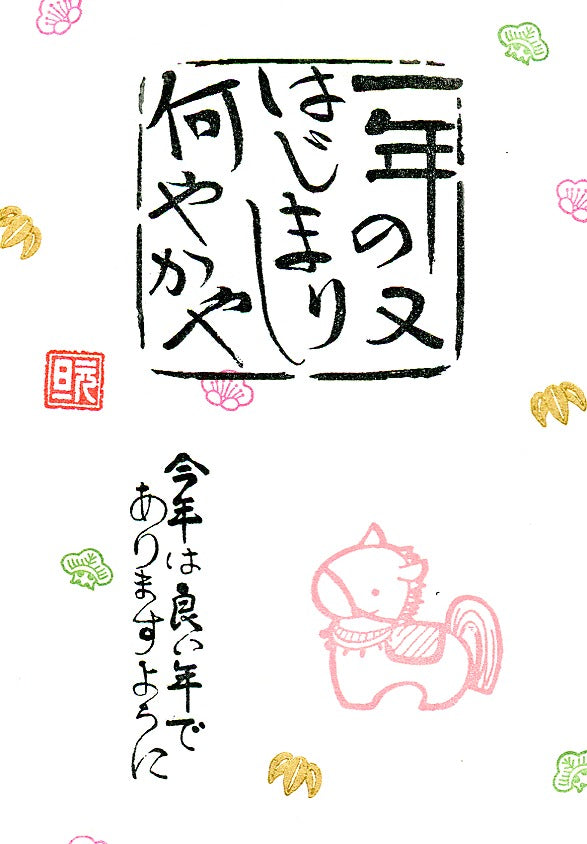 一年の又
はじまり
何やかや
元旦
今年は良い年で
ありますように